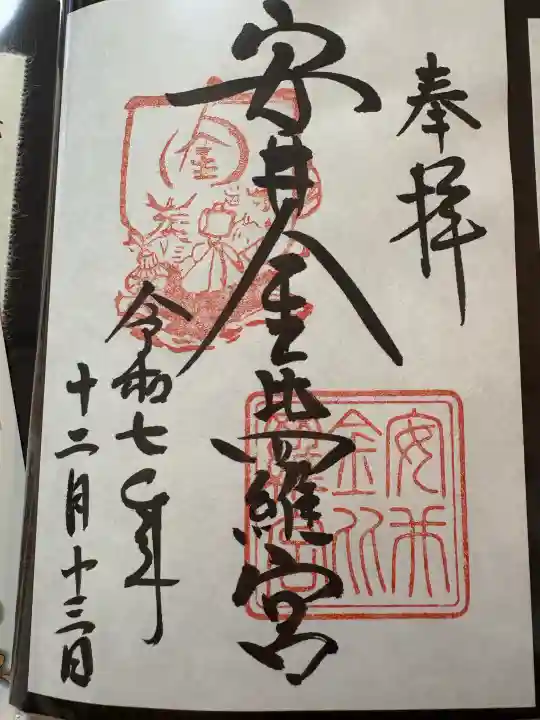 奉拝
安井金比羅宮
令和七年
十二月十三日
金
安井
金比
羅宮